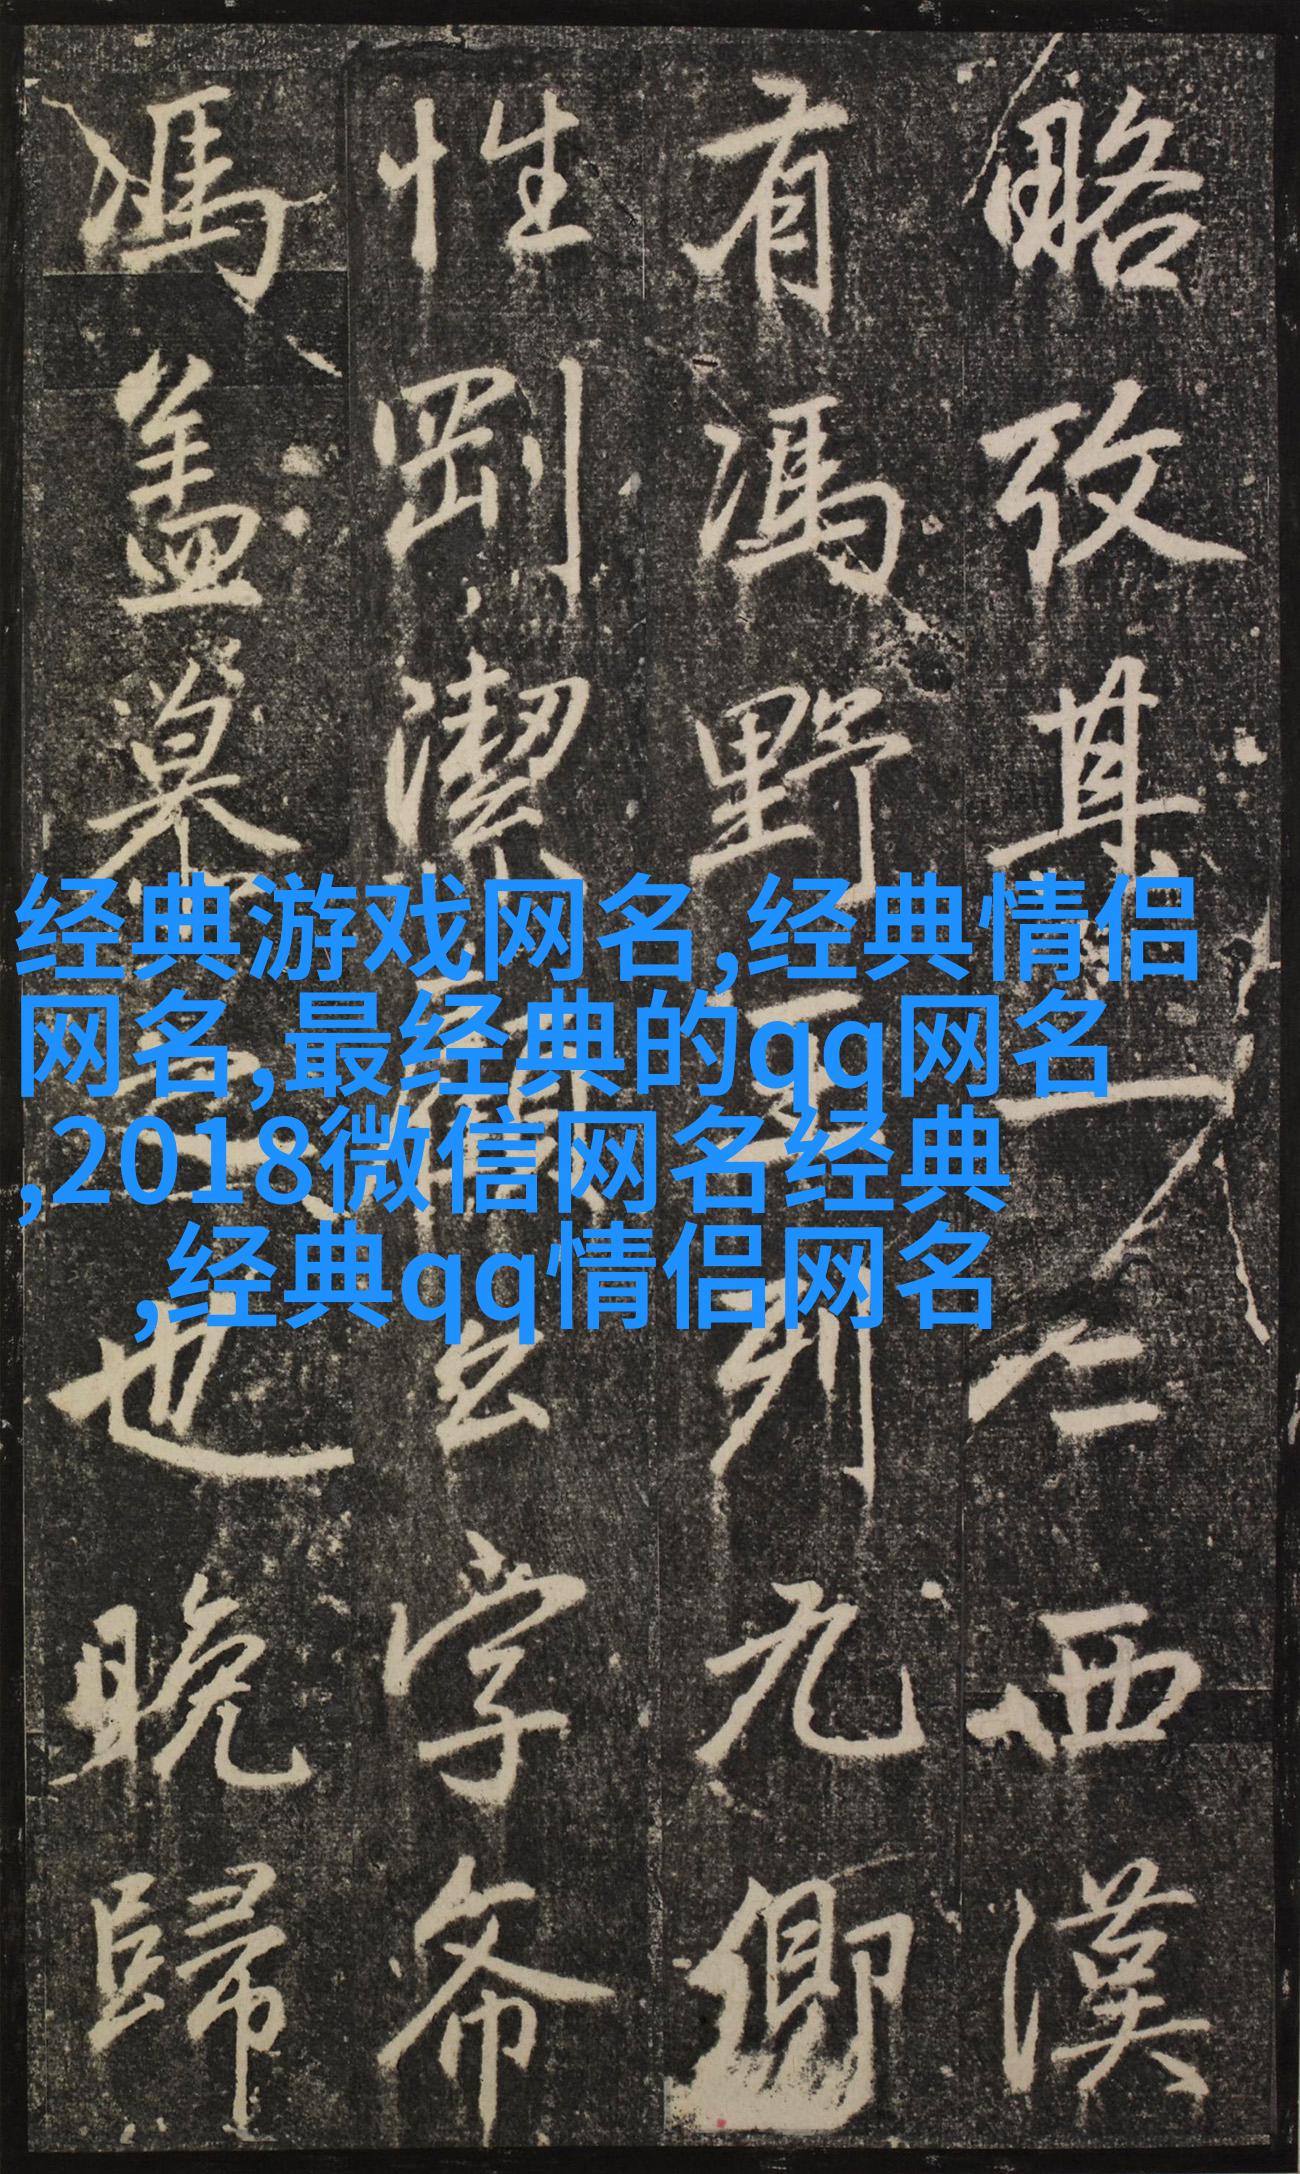 略攷其一二西漢
有馮野王列九卿
性剛潔字
馮蓋慕之也晚歸
经典游戏网名,经典情侣
网名,最经典的qq网名
,2018微信网名经典
,经典qq情侣网名